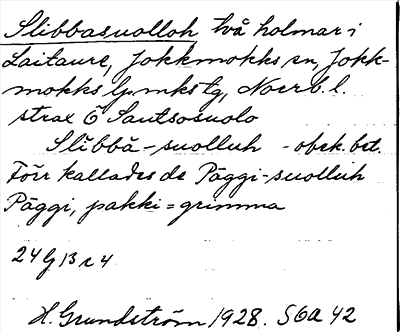 Slibbasuolloh två holmar i
Laitaure, Jokkmokks sn, Jokk-
mokks lpmks tg, Norrb. l.
strax Ö Sautsosuolo
Slibbà-suolluh - obek. bet.
Förr kallades de Päggi-suolluh
Päggi, pakki = grimma
24 g 13 c 4
H. Grundström 1928. S6a 42